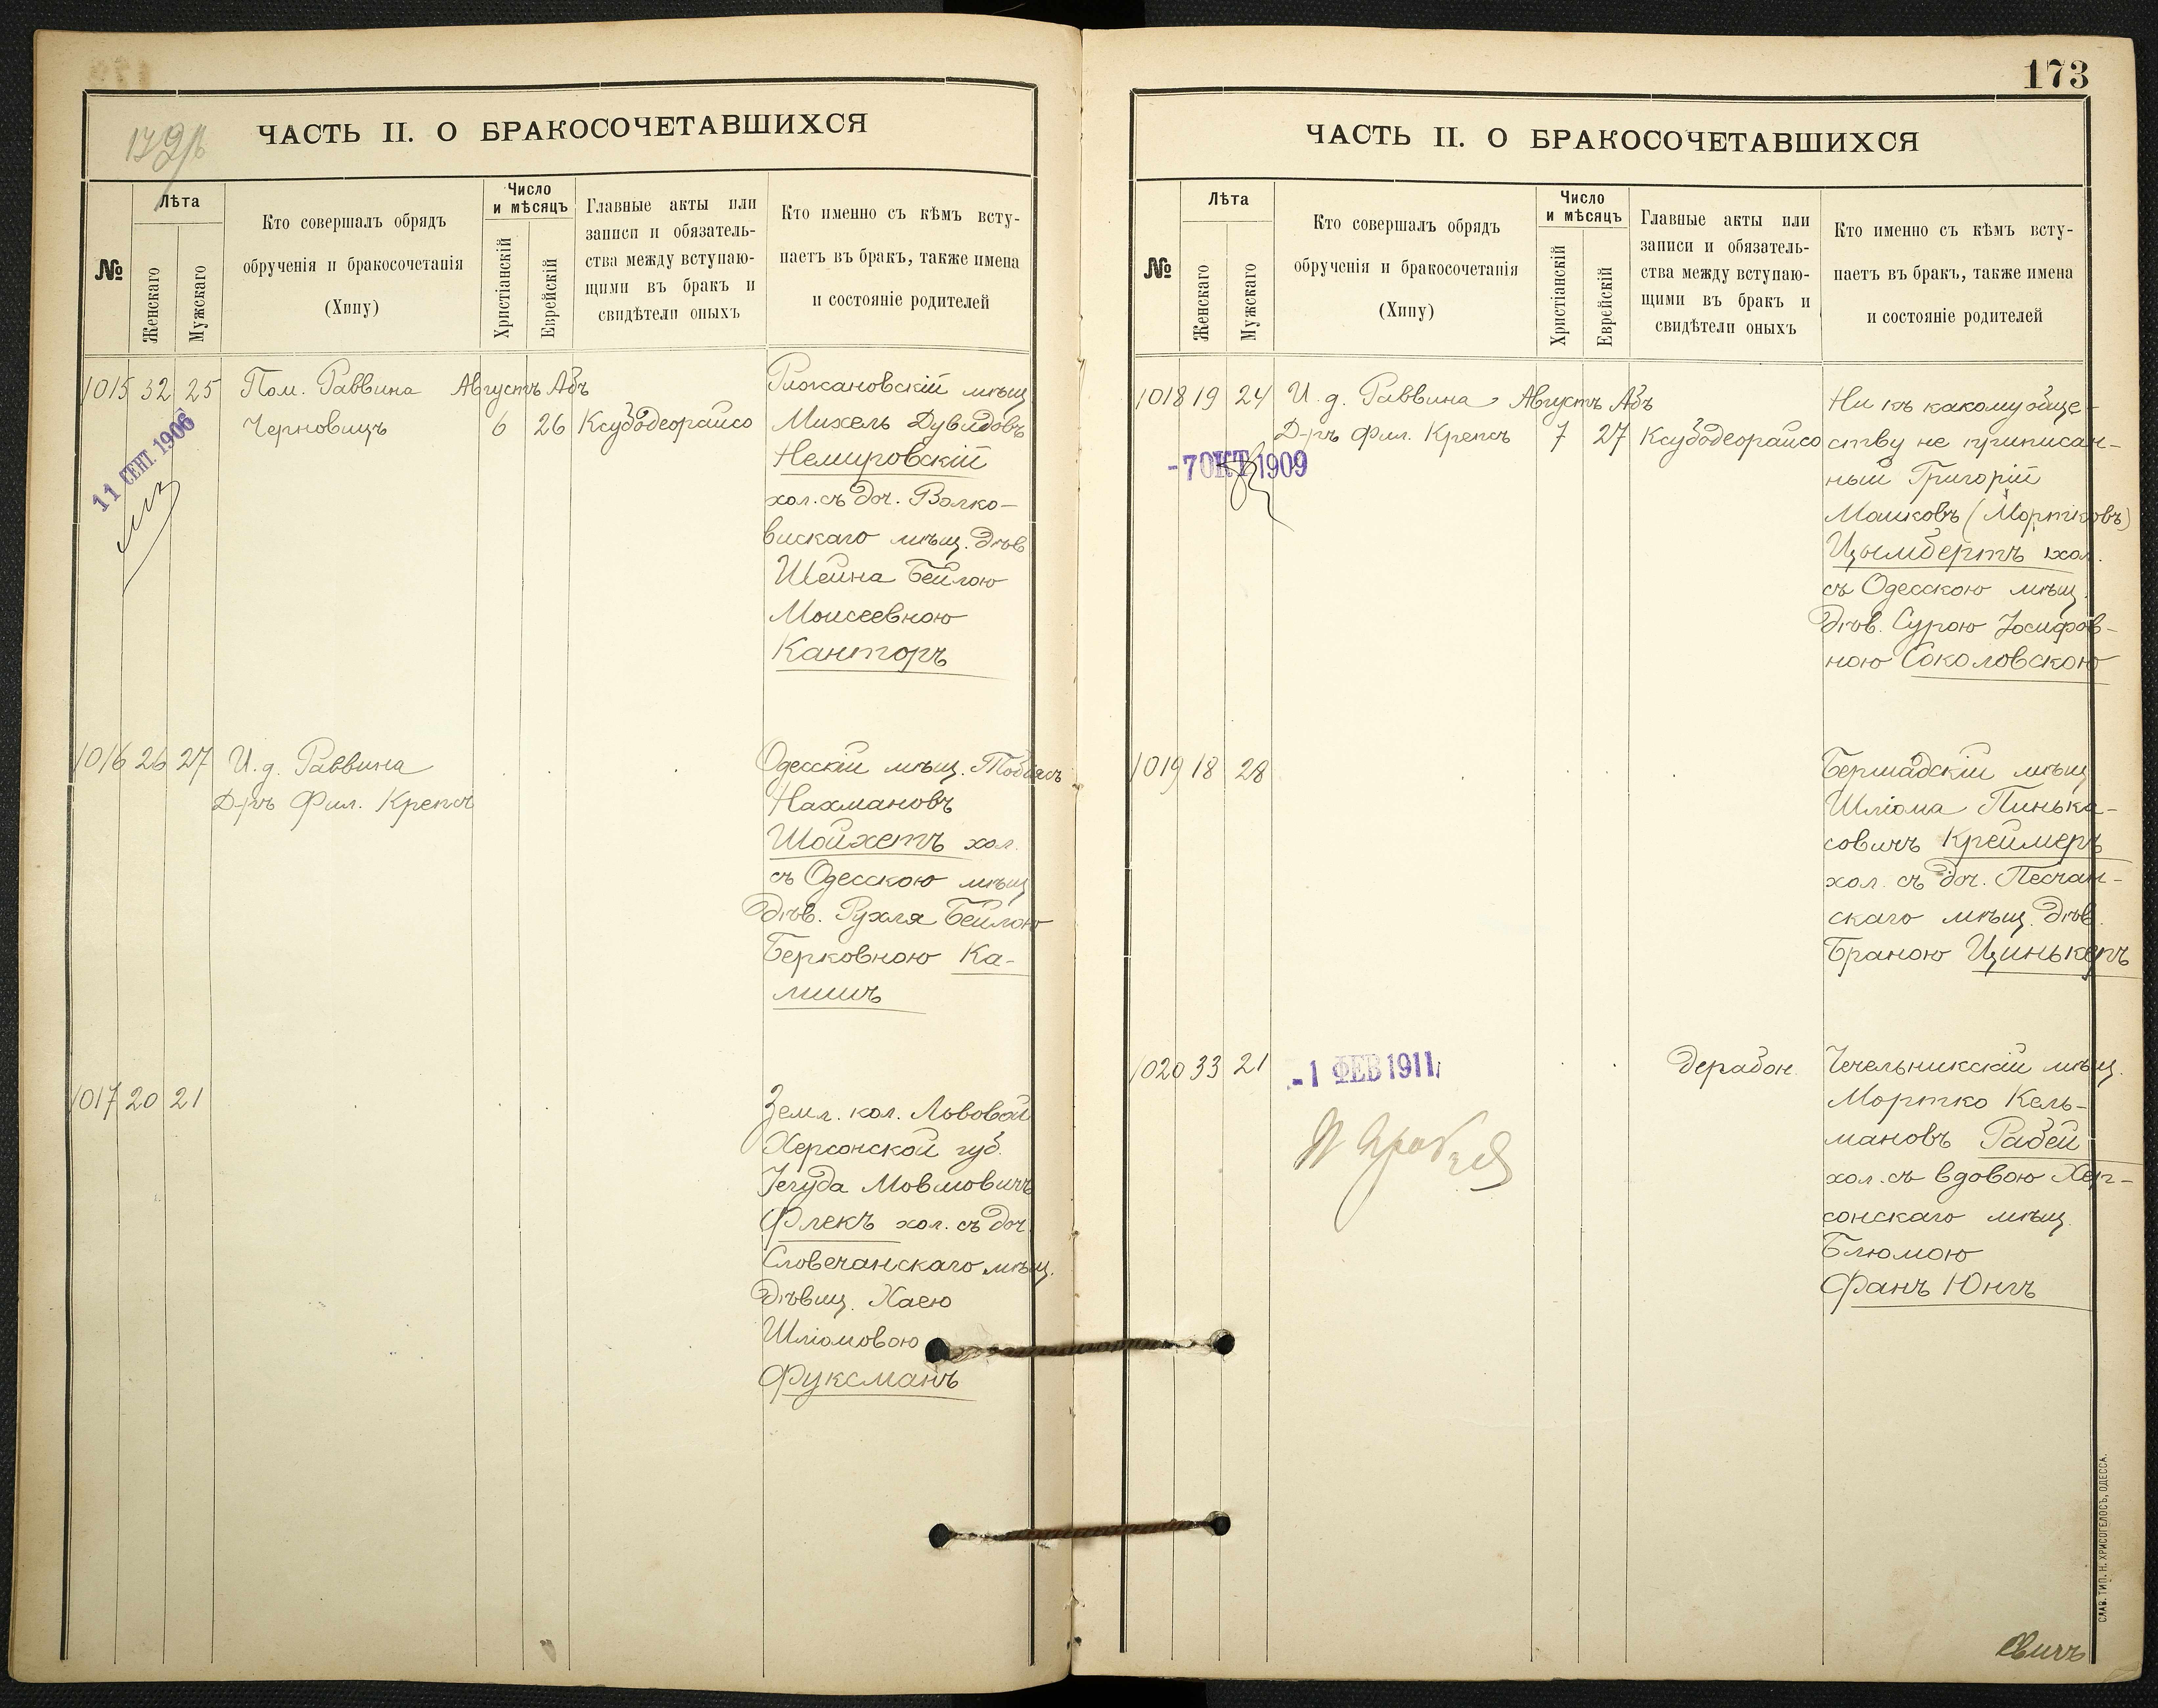 ЧАСТЬ II. О БРАКОСОЧЕТАВШИХСЯ
№
Лѣта
Женскаго
Мужскаго
Кто совершалъ обрядъ
обрученія и бракосочетанія
(Хипу)
Число
и мѣсяцъ
Христіанскій
Еврейскій
Главные акты или
записи и обязатель-
ства между вступаю-
щими въ бракъ и
свидѣтели оныхъ
Кто именно съ кѣмъ всту-
паетъ въ бракъ, также имена
и состояніе родителей
1015 32 25 Пом. Раввина Августъ Абъ
Черновицъ 6 26 Ксубодеорайсо
11 СЕНТ. 1906
мѣщ
Михель Дувидовъ
Немировскій
хол. съ доч. Волко-
вискаго мѣщ. дѣв
Шейна Бейлою
Моисеевною
Канторъ
1016 26 27 И. д. Раввина
Д-ръ Фил. Крепсъ
Одесскій мѣщ. Тобіасъ
Нахмановъ
Шойхетъ хол.
съ Одесскою мѣщ
дѣв. Рухля Бейлою
Берковною Ка-
лишъ
1017 20 21
Земл. кол. Львовой
Херсонской губ.
Іегуда Мовшовичъ
Флекъ хол. съ доч.
Словечанскаго мѣщ.
дѣвиц. Хаею
Шліомовою
Фуксманъ
173
ЧАСТЬ II. О БРАКОСОЧЕТАВШИХСЯ
№
Лѣта
Женскаго
Мужскаго
Кто совершалъ обрядъ
обрученія и бракосочетанія
(Хипу)
Число
и мѣсяцъ
Христіанскій
Еврейскій
Главные акты или
записи и обязатель-
ства между вступаю-
щими въ бракъ и
свидѣтели оныхъ
Кто именно съ кѣмъ всту-
паетъ въ бракъ, также имена
и состояніе родителей
1018 19 24 И. д. Раввина Августъ Абъ
Д-ръ Фил. Крепсъ 7 27 Ксубодеорайсо
-7 ОКТ 1909
Ни къ какому обще-
ству не приписан-
ный Григорій
Машковъ (Мортковъ)
Цымбертъ хол.
съ Одесскою мѣщ.
дѣв. Сурою Іосифов-
ною Соколовскою
1019 18 28
Бершадскій мѣщ
Шліома Пинька-
совичъ Креймеръ
хол. съ доч. Песчан-
скаго мѣщ. дѣв.
Браною Цинькеръ
1020 33 21
-1 ФЕВ 1911
дерабон.
Чечельникскій мѣщ.
Мортко Кель-
мановъ Рабей
хол. съ вдовою Хер-
сонскаго мѣщ.
Блюмою
Фанъ Юнгъ
СЛАВ. ТИП. Н. ХРИСОГЕЛОСЪ, ОДЕССА.